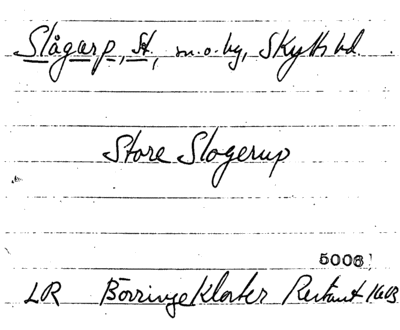 Slågarp, St., s.o.by, Skytts hd.
Store Slogerup
5006
LR Börringe Kloster Restant 1603